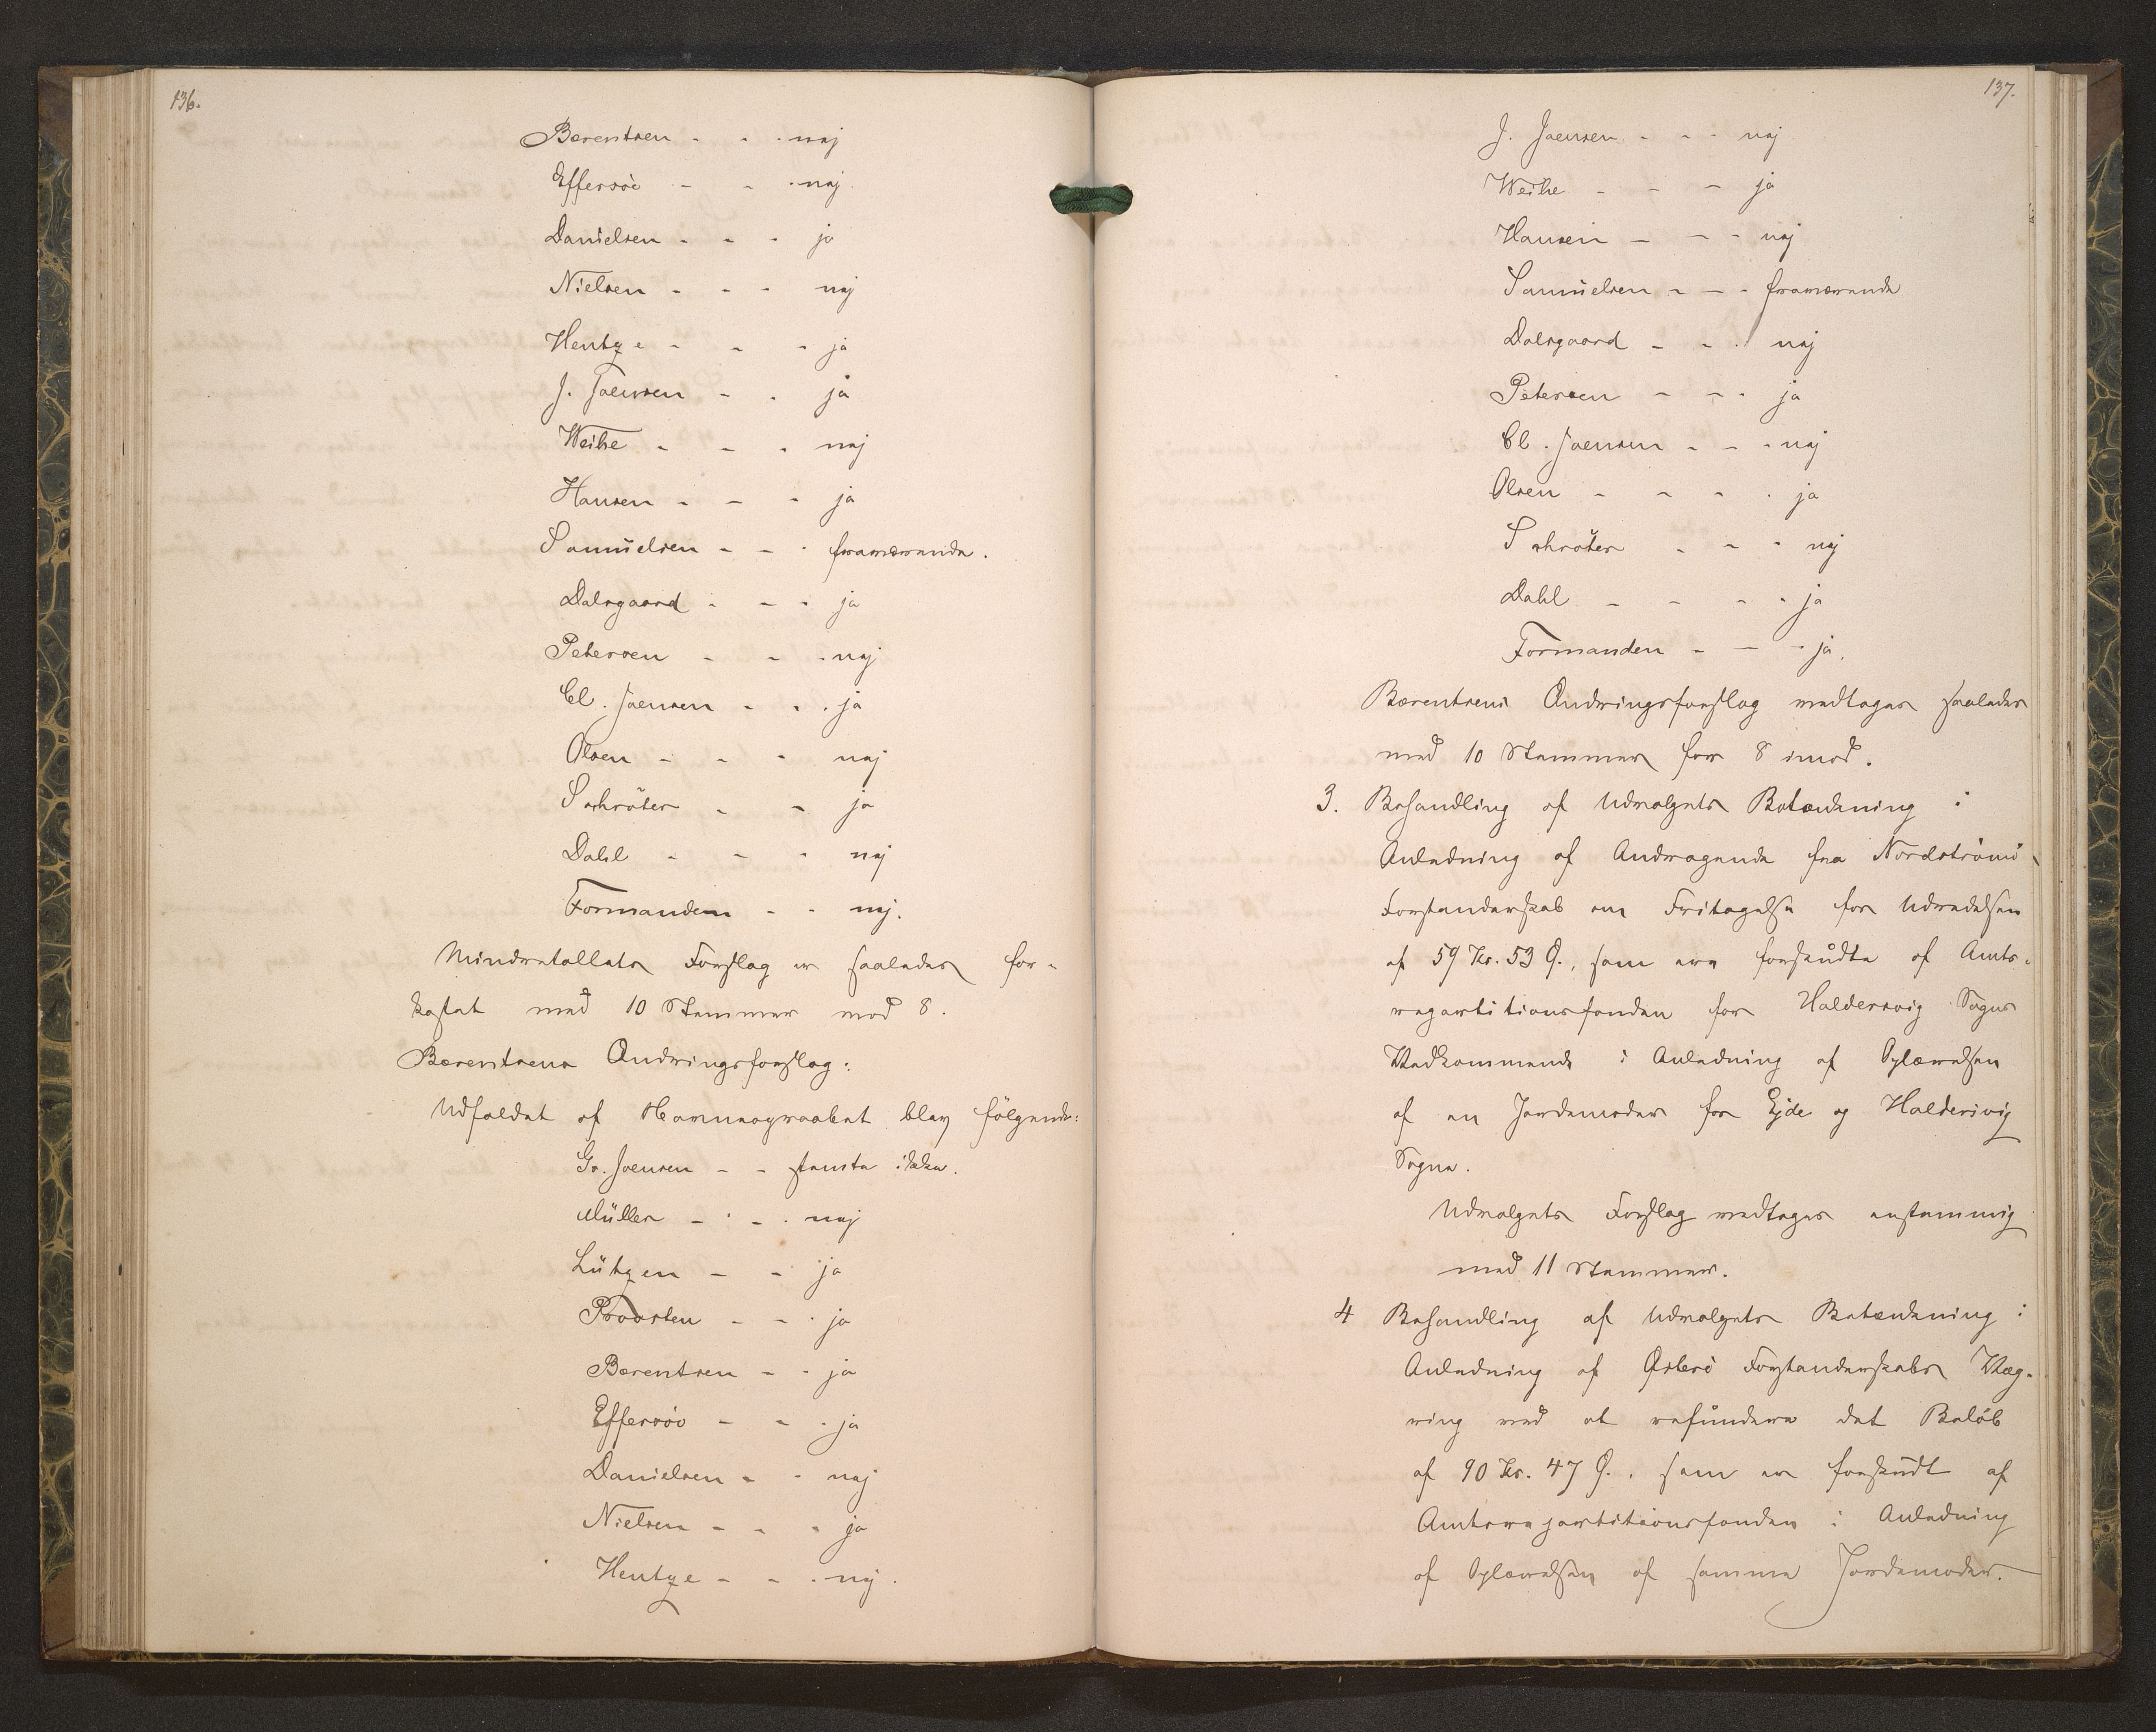 136.
Bærentsen - - - nej
Effersöe - - - nej
Danielsen - - - ja
Nielsen - - - nej
Hentze - - - ja
J. Joensen - - ja
Weihe - - - nej
Hansen - - - ja
Samuelsen - - - fraværende.
Dalsgaard - - - ja
Petersen - - - nej
Cl. Joensen - - - ja
Olsen - - - nej
Schröter - - ja
Dahl - - - nej
Formanden - - nej.
Mindretallets Forslag er saaledes for-
kastet med 10 Stemmer mod 8.
Bærentsens Ændringsforslag:
Udfaldet af Navneopraabet blev fölgende:
Gr. Joensen - - stemte ikke.
Müller - - - nej
Lützen - - ja
Provsten - - - ja
Bærentsen - - ja
Effersöe - - - ja
Danielsen - - nej
Nielsen - - - ja
Hentze - - - nej.
137.
J. Joensen - - - nej
Weihe - - - ja
Hansen - - - nej
Samuelsen - - - fraværende
Dalsgaard - - - nej
Petersen - - - ja
Cl. Joensen - - - nej
Olsen - - - - ja
Schröter - - - nej
Dahl - - - - ja
Formanden - - - ja.
Bærentsens Ændringsforslag vedtages saaledes
med 10 Stemmer for 8 imod.
3. Behandling af Udvalgets Betænkning i
Anledning af Andragende fra Nordströmö
Forstanderskab om Fritagelse for Udredelsen
af 59 Kr. 53 Ø., som ere forskudte af Amts-
repartitionsfonden for Haldersvig Sogns
Vedkommende i Anledning af Oplærelsen
af en Jordemoder for Ejde og Haldersvig
Sogne.
Udvalgets Forslag vedtages enstemmig
med 11 Stemmer.
4 Behandling af Udvalgets Betænkning i
Anledning af Østerö Forstanderskabs Væg-
ring ved at refundere det Belöb
af 90 Kr. 47 Ø., som er forskudt af
Amtsrepartitionsfonden i Anledning
af Oplærelsen af samme Jordemoder.